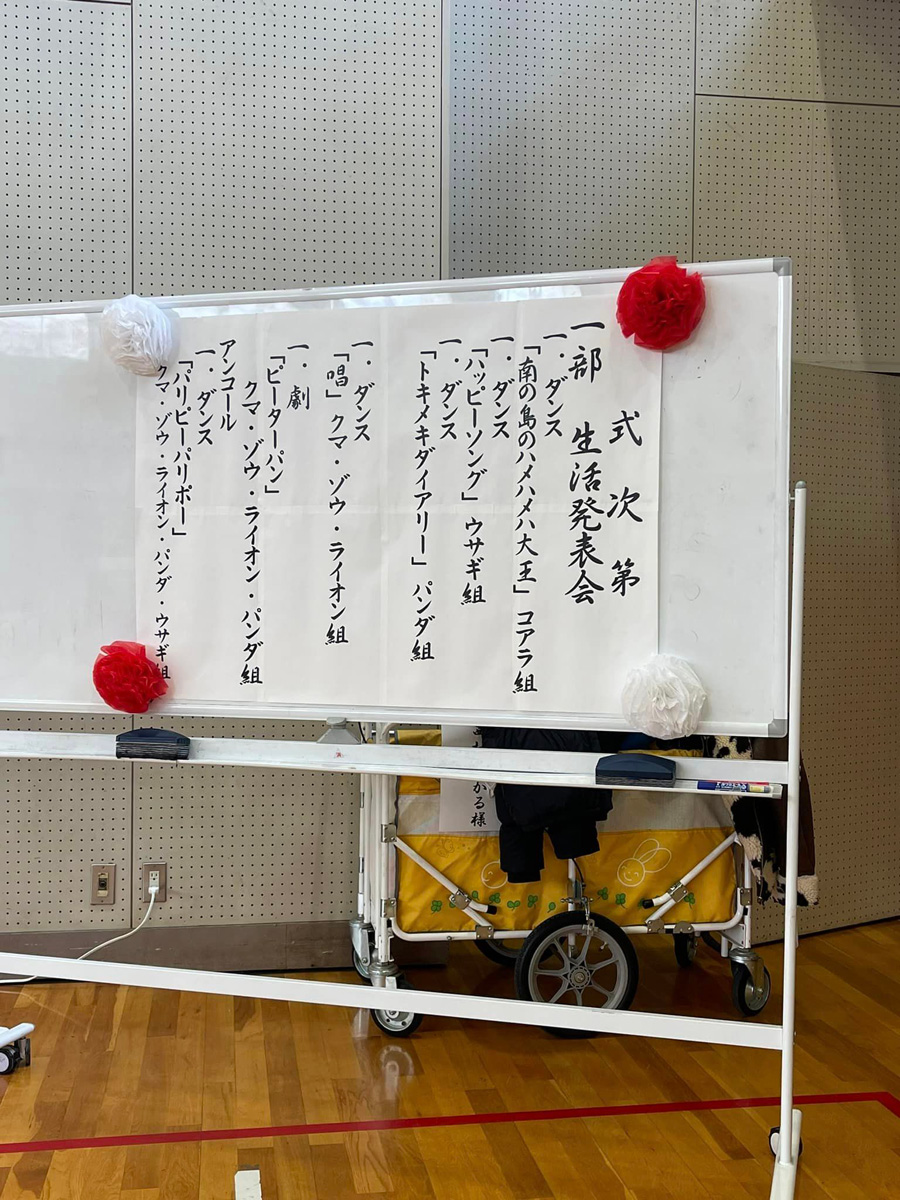 式次第
一部 生活発表会
一．ダンス
「南の島のハメハメハ大王」コアラ組
一．ダンス
「ハッピーソング」ウサギ組
一．ダンス
「トキメキダイアリー」パンダ組
一．ダンス
「唱」クマ・ゾウ・ライオン組
一．劇
「ピーターパン」
クマ・ゾウ・ライオン・パンダ組
アンコール
一．ダンス
「パリピーパリポー」
クマ・ゾウ・ライオン・パンダ・ウサギ組
かる様